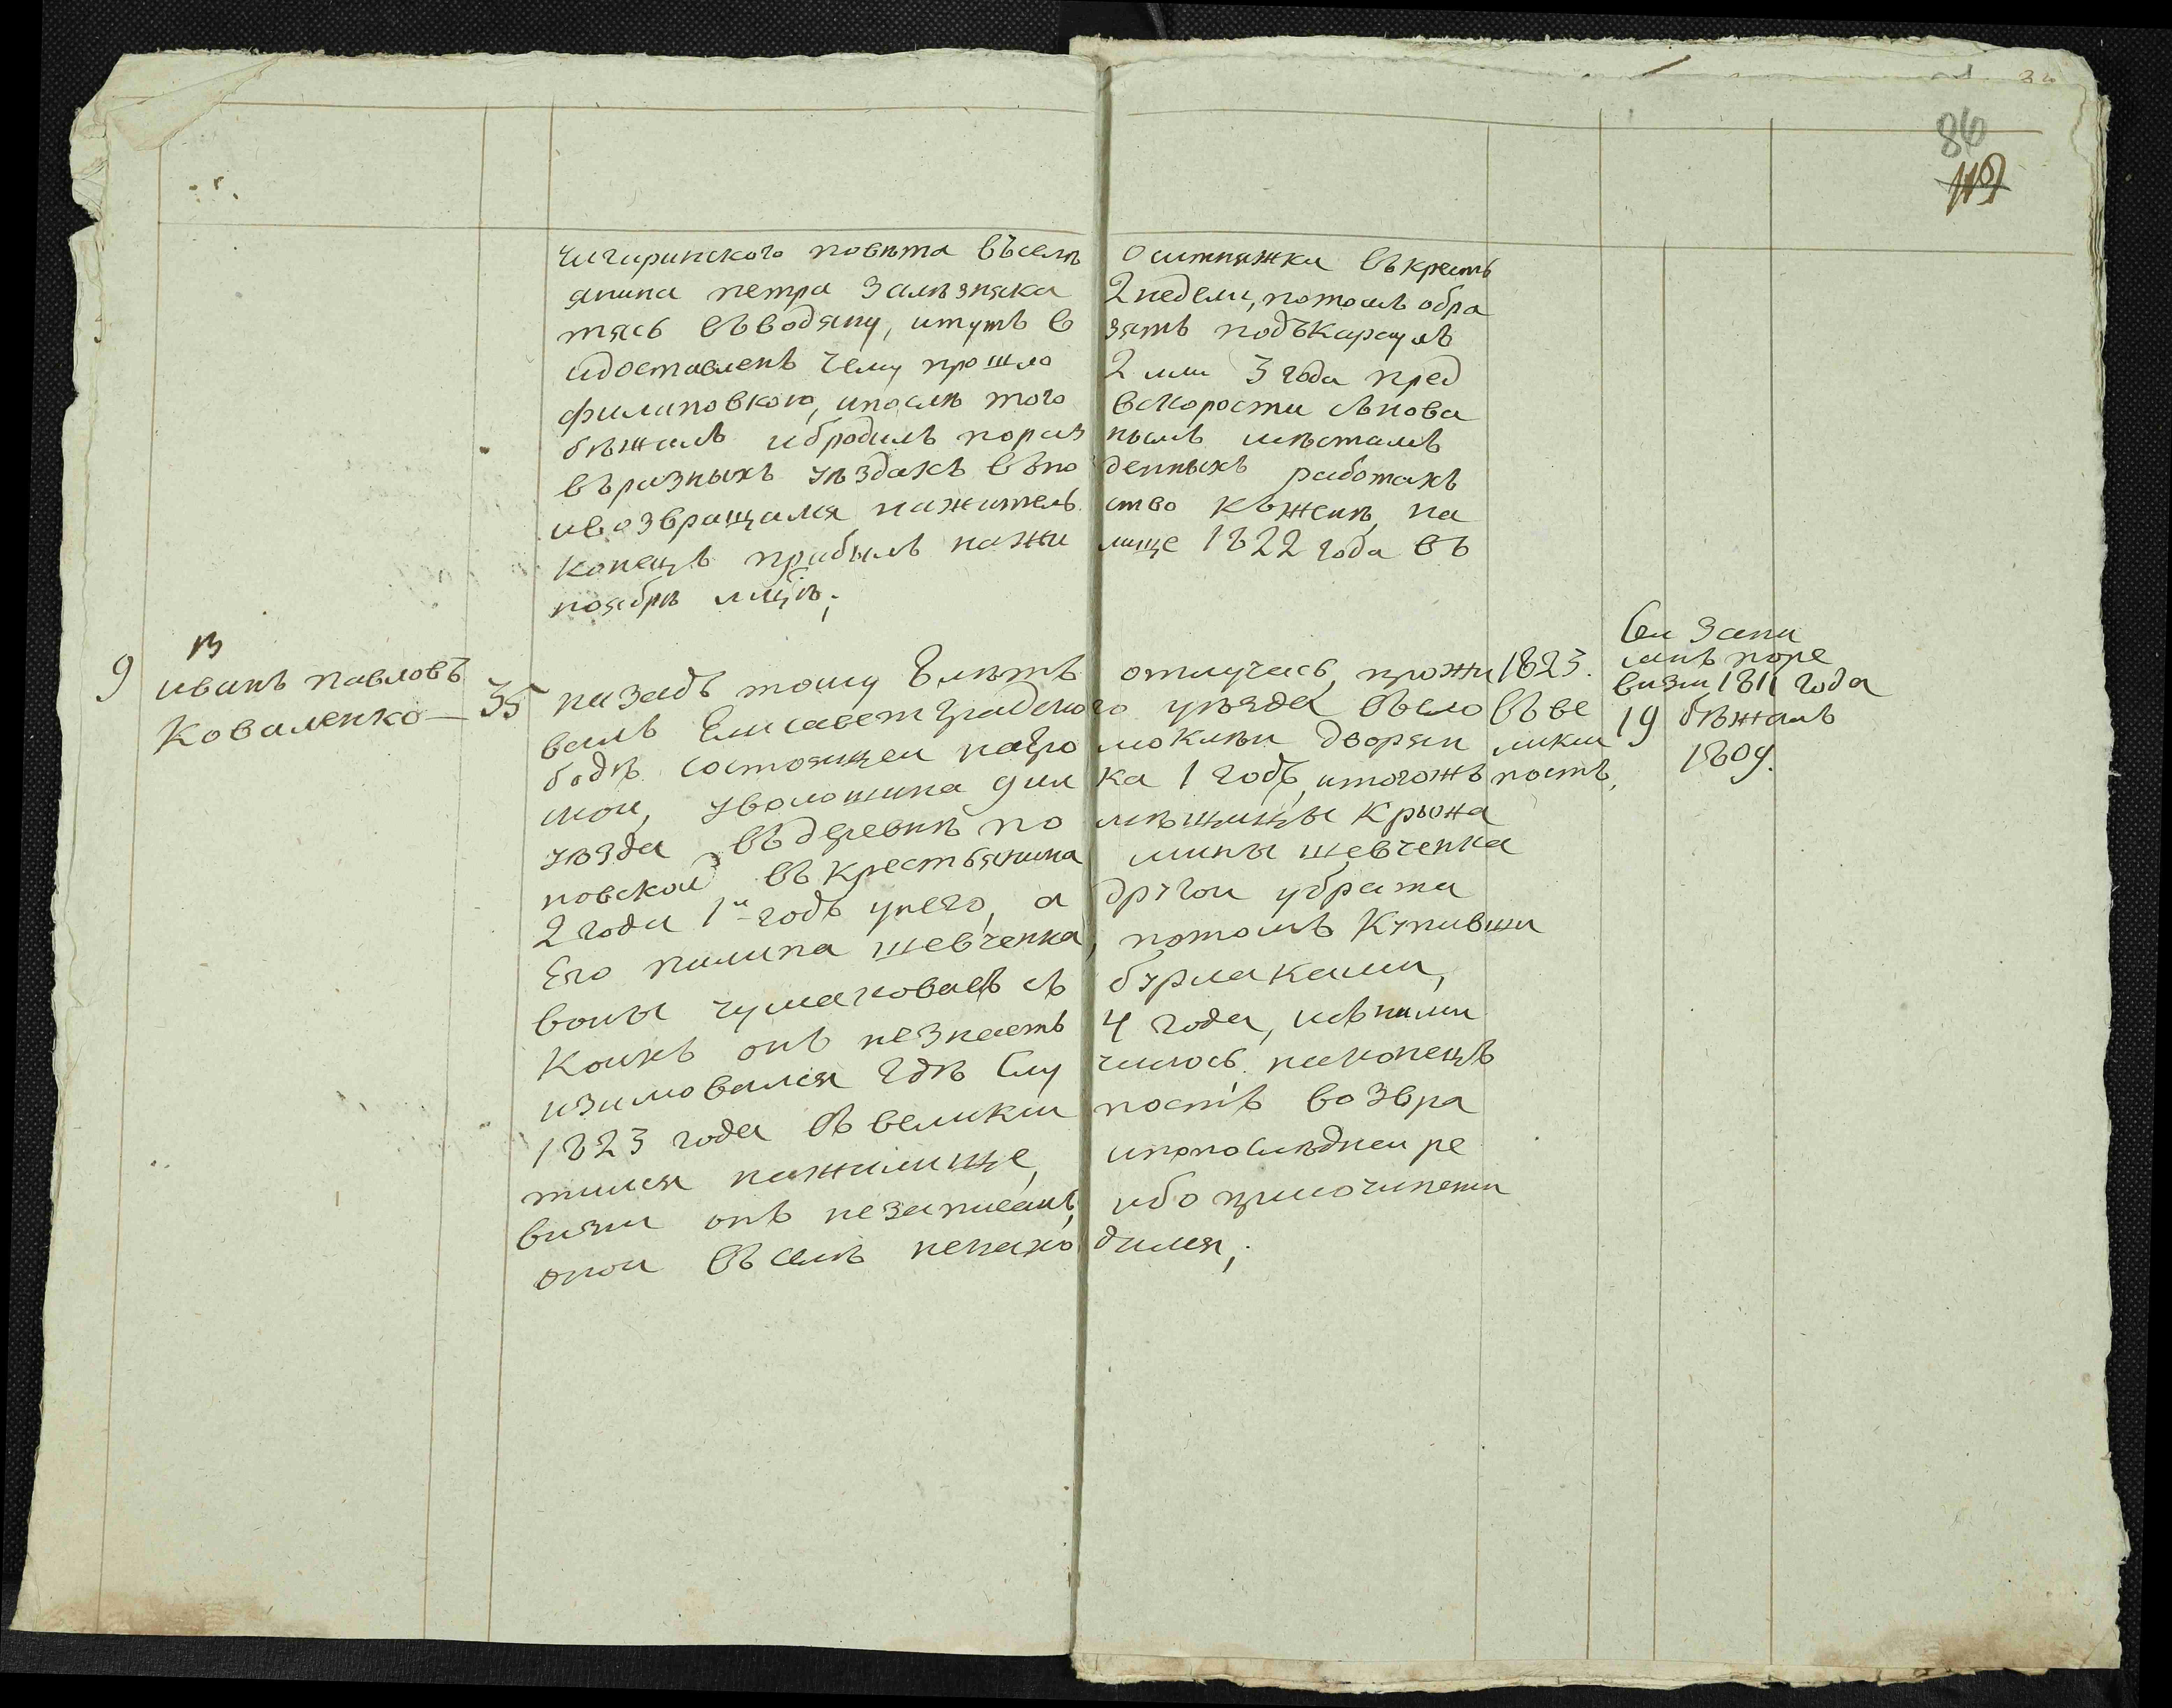 86
чигиринского повѣта въселѣ оситняжки въкресть
янина петра Залѣзняка 2 недели, потомъ обра
тясь въводяну, итутъ взятъ подъкараулъ
идоставленъ чему прошло 2 или 3 года пред
филиповкою, ипослѣ того вскорости сънова
бѣжалъ ибродилъ поразнымъ мѣстамъ
въразныхъ уѣздахъ въподенныхъ работахъ
ивозвращался нажительство къженѣ, на
конецъ прибылъ нажилище 1822 года въ
ноябрѣ мцѣ;
9 иванъ павловъ
Коваленко — 35
назадъ тому 8 лѣтъ отлучась, прожи
валъ Елисаветградского уѣзда въсло
бодѣ состоящеи нагромоклѣи дворян
скои, уволошина дика 1 годъ, итогожъ
уѣзда въдеревнѣ помѣщицы Крюжа
новскои въкрестьянина мины шевченка
2 года 1и годъ унего, а другои убрата
Его пилипа шевченка, потомъ Купивши
волы чумаковалъ съ бурлаками,
коихъ онъ незнаетъ 4 года, исъними
изимовался гдѣ Случилось, наконецъ
1823 года въвеликии постъ возвра
тился нажилище, ипопоследнеи ре
визии онъ незаписанъ, ибо присочинении
онои въселѣ ненаходился;
1823.
въве
ликии
постъ,
Сеи запи
санъ поре
визии 1811 года
19 бѣжалъ
1809.